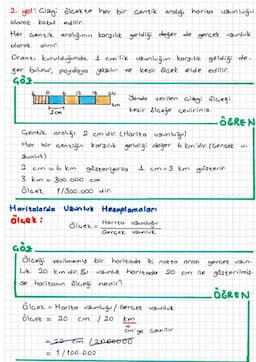 2. yol: Çizgi ölçekte her bir çentik aralığı harita uzunluğu
olarak kabul edilir.
Her çentik aralığının karşılık geldiği değer de gerçek uzunluk
olarak alınır.
Orantı kurulduğunda, 1 cm'lik uzunluğun karşılık geldiği de-
ğer bulunur, paydaya yazılır ve kesir ölçek elde edilir.
ÇÖZ
6 0 6 12 18 24
km
2cm
Yanda verilen çizgi ölçeği
kesir ölçeğe çevirimiz.
ÖĞREN
Çentik aralığı 2 cm'dir. (Harita uzunluğu)
Her bir çentiğin karşılık geldiği değer 6 km'dir. (Gerçek u-
zunluk)
2 cm = 6 km gösteriyorsa 1 cm = 3 km gösterir.
3 km = 300.000 cm
Ölçek 1/300.000 dir.
Haritalarda Uzunluk Hesaplamaları
Ölçek:
Ölçek = Harita uzunluğu
Gerçek uzunluk
ÇÖZ
Ölçeği verilmemiş bir haritada iki nokta arası gerçek uzun-
luk 20 km'dir. Bu uzunluk haritada 20 cm ile gösterilmiş-
se haritanın ölçeği nedir?
ÖĞREN
Ölçek = Harita uzunluğu / Gerçek uzunluk
Ölçek = 20 cm / 20 km
cm'ye çevrilir
= 20 cm / 2000000
= 1/100.000